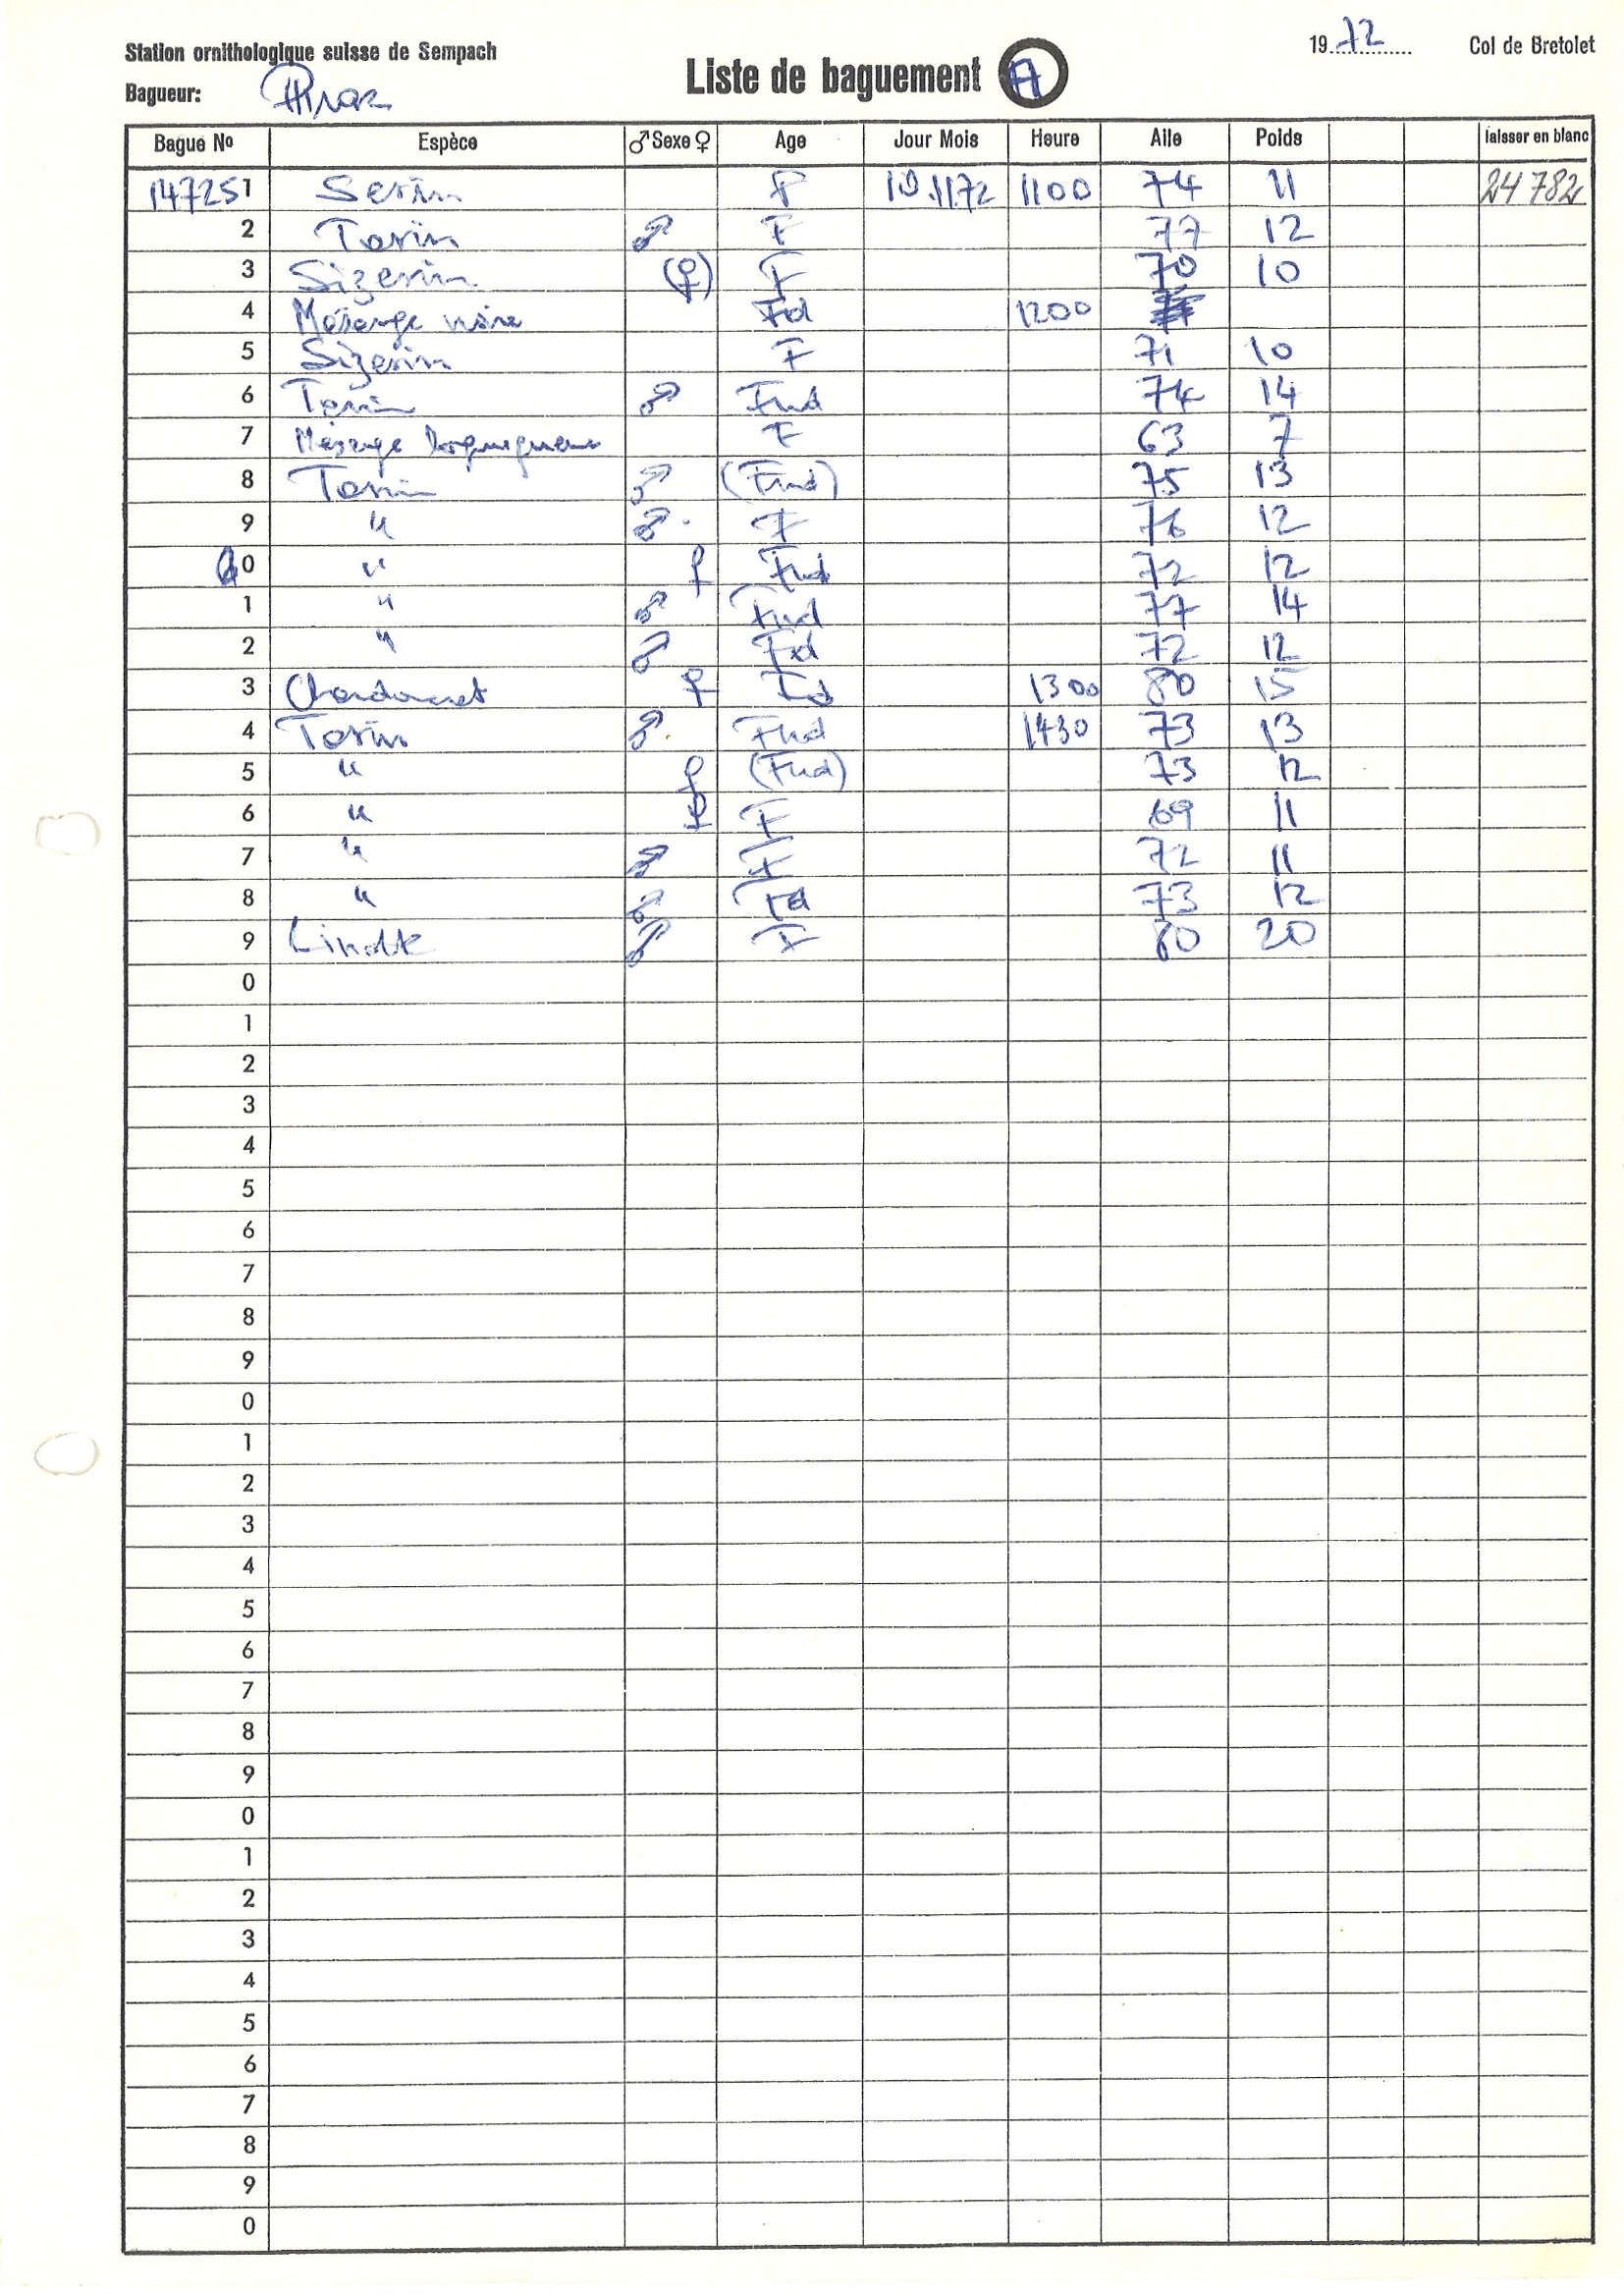 Station ornithologique suisse de Sempach
Bagueur:
Liste de baguement A
1972 Col de Bretolet
Bague No Espèce ♂ Sexe ♀ Age Jour Mois Heure Aile Poids laisser en blanc
147251 Serin F 10.11.72 1100 74 11 24782
2 Tarin ♂ F 77 12
3 Sizerin (♀) F 70 10
4 Mésange noire Fd 1200
5 Sizerin F 71 10
6 Tarin ♂ Fnd 74 14
7 Mésange longuequeue F 63 7
8 Tarin ♂ (Fnd) 75 13
9 " ♂ F 76 12
60 " ♀ Fnd 72 12
1 " ♂ Fnd 77 14
2 " ♂ Fd 72 12
3 Chardonneret ♀ Fd 1300 80 15
4 Tarin ♂ Fnd 1430 73 13
5 " ♀ (Fnd) 73 12
6 " ♀ F 69 11
7 " ♂ F 72 11
8 " ♂ Fd 73 12
9 Linotte ♂ F 80 20
0
1
2
3
4
5
6
7
8
9
0
1
2
3
4
5
6
7
8
9
0
1
2
3
4
5
6
7
8
9
0